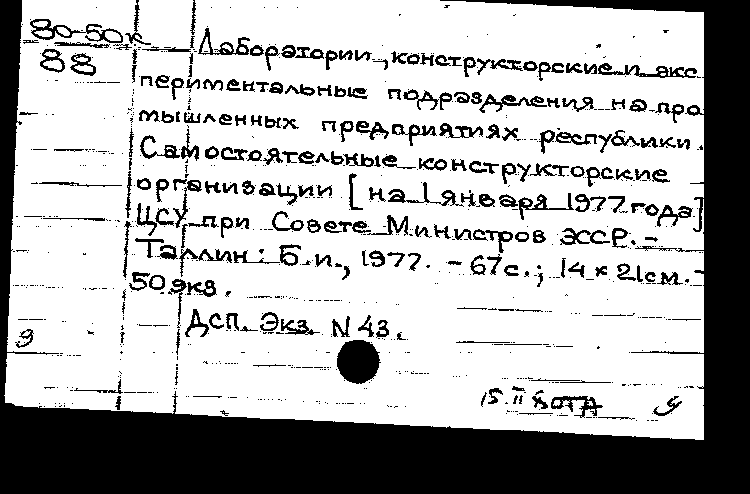 80-50к
88
Лаборатории, конструкторские и экс
периментальные подразделения на про
мышленных предприятиях республики.
Самостоятельные конструкторские
организации [на 1 января 1977 года]
ЦСУ при Совете Министров ЭССР. -
Таллин: Б.и., 1977. - 67с.; 14 x 21см. -
50 экз.
ДСП. Экз. N 43.
э
15.II